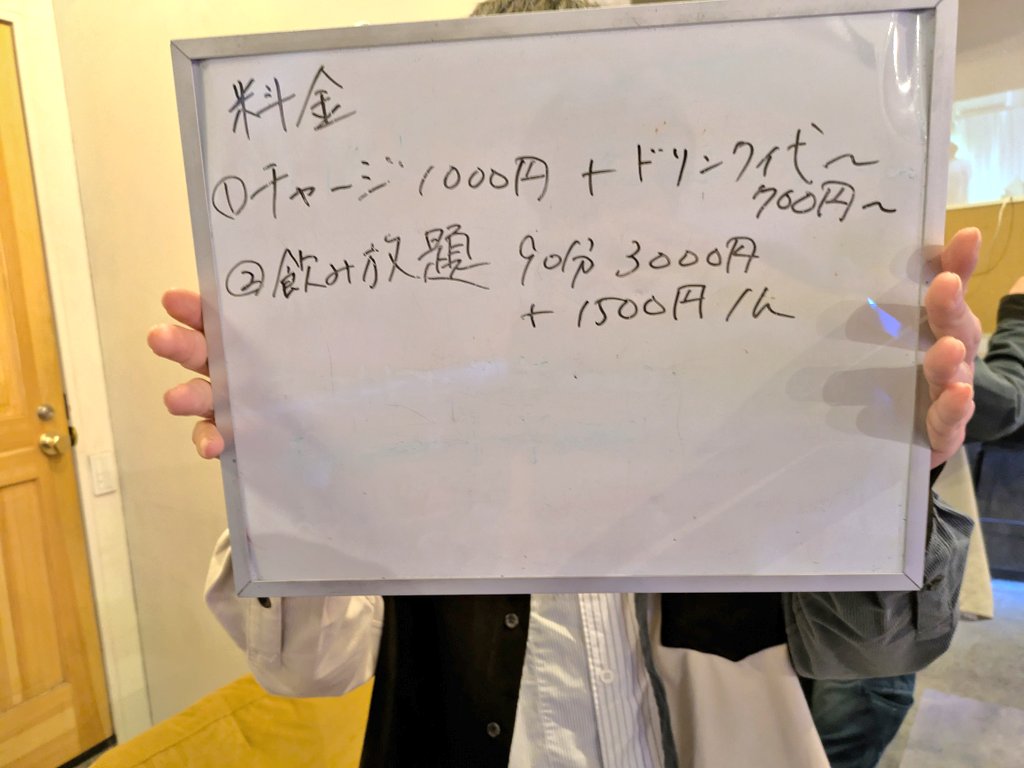 料金
①チャージ 1000円 + ドリンク代〜
700円〜
②飲み放題 90分 3000円
+ 1500円/1h